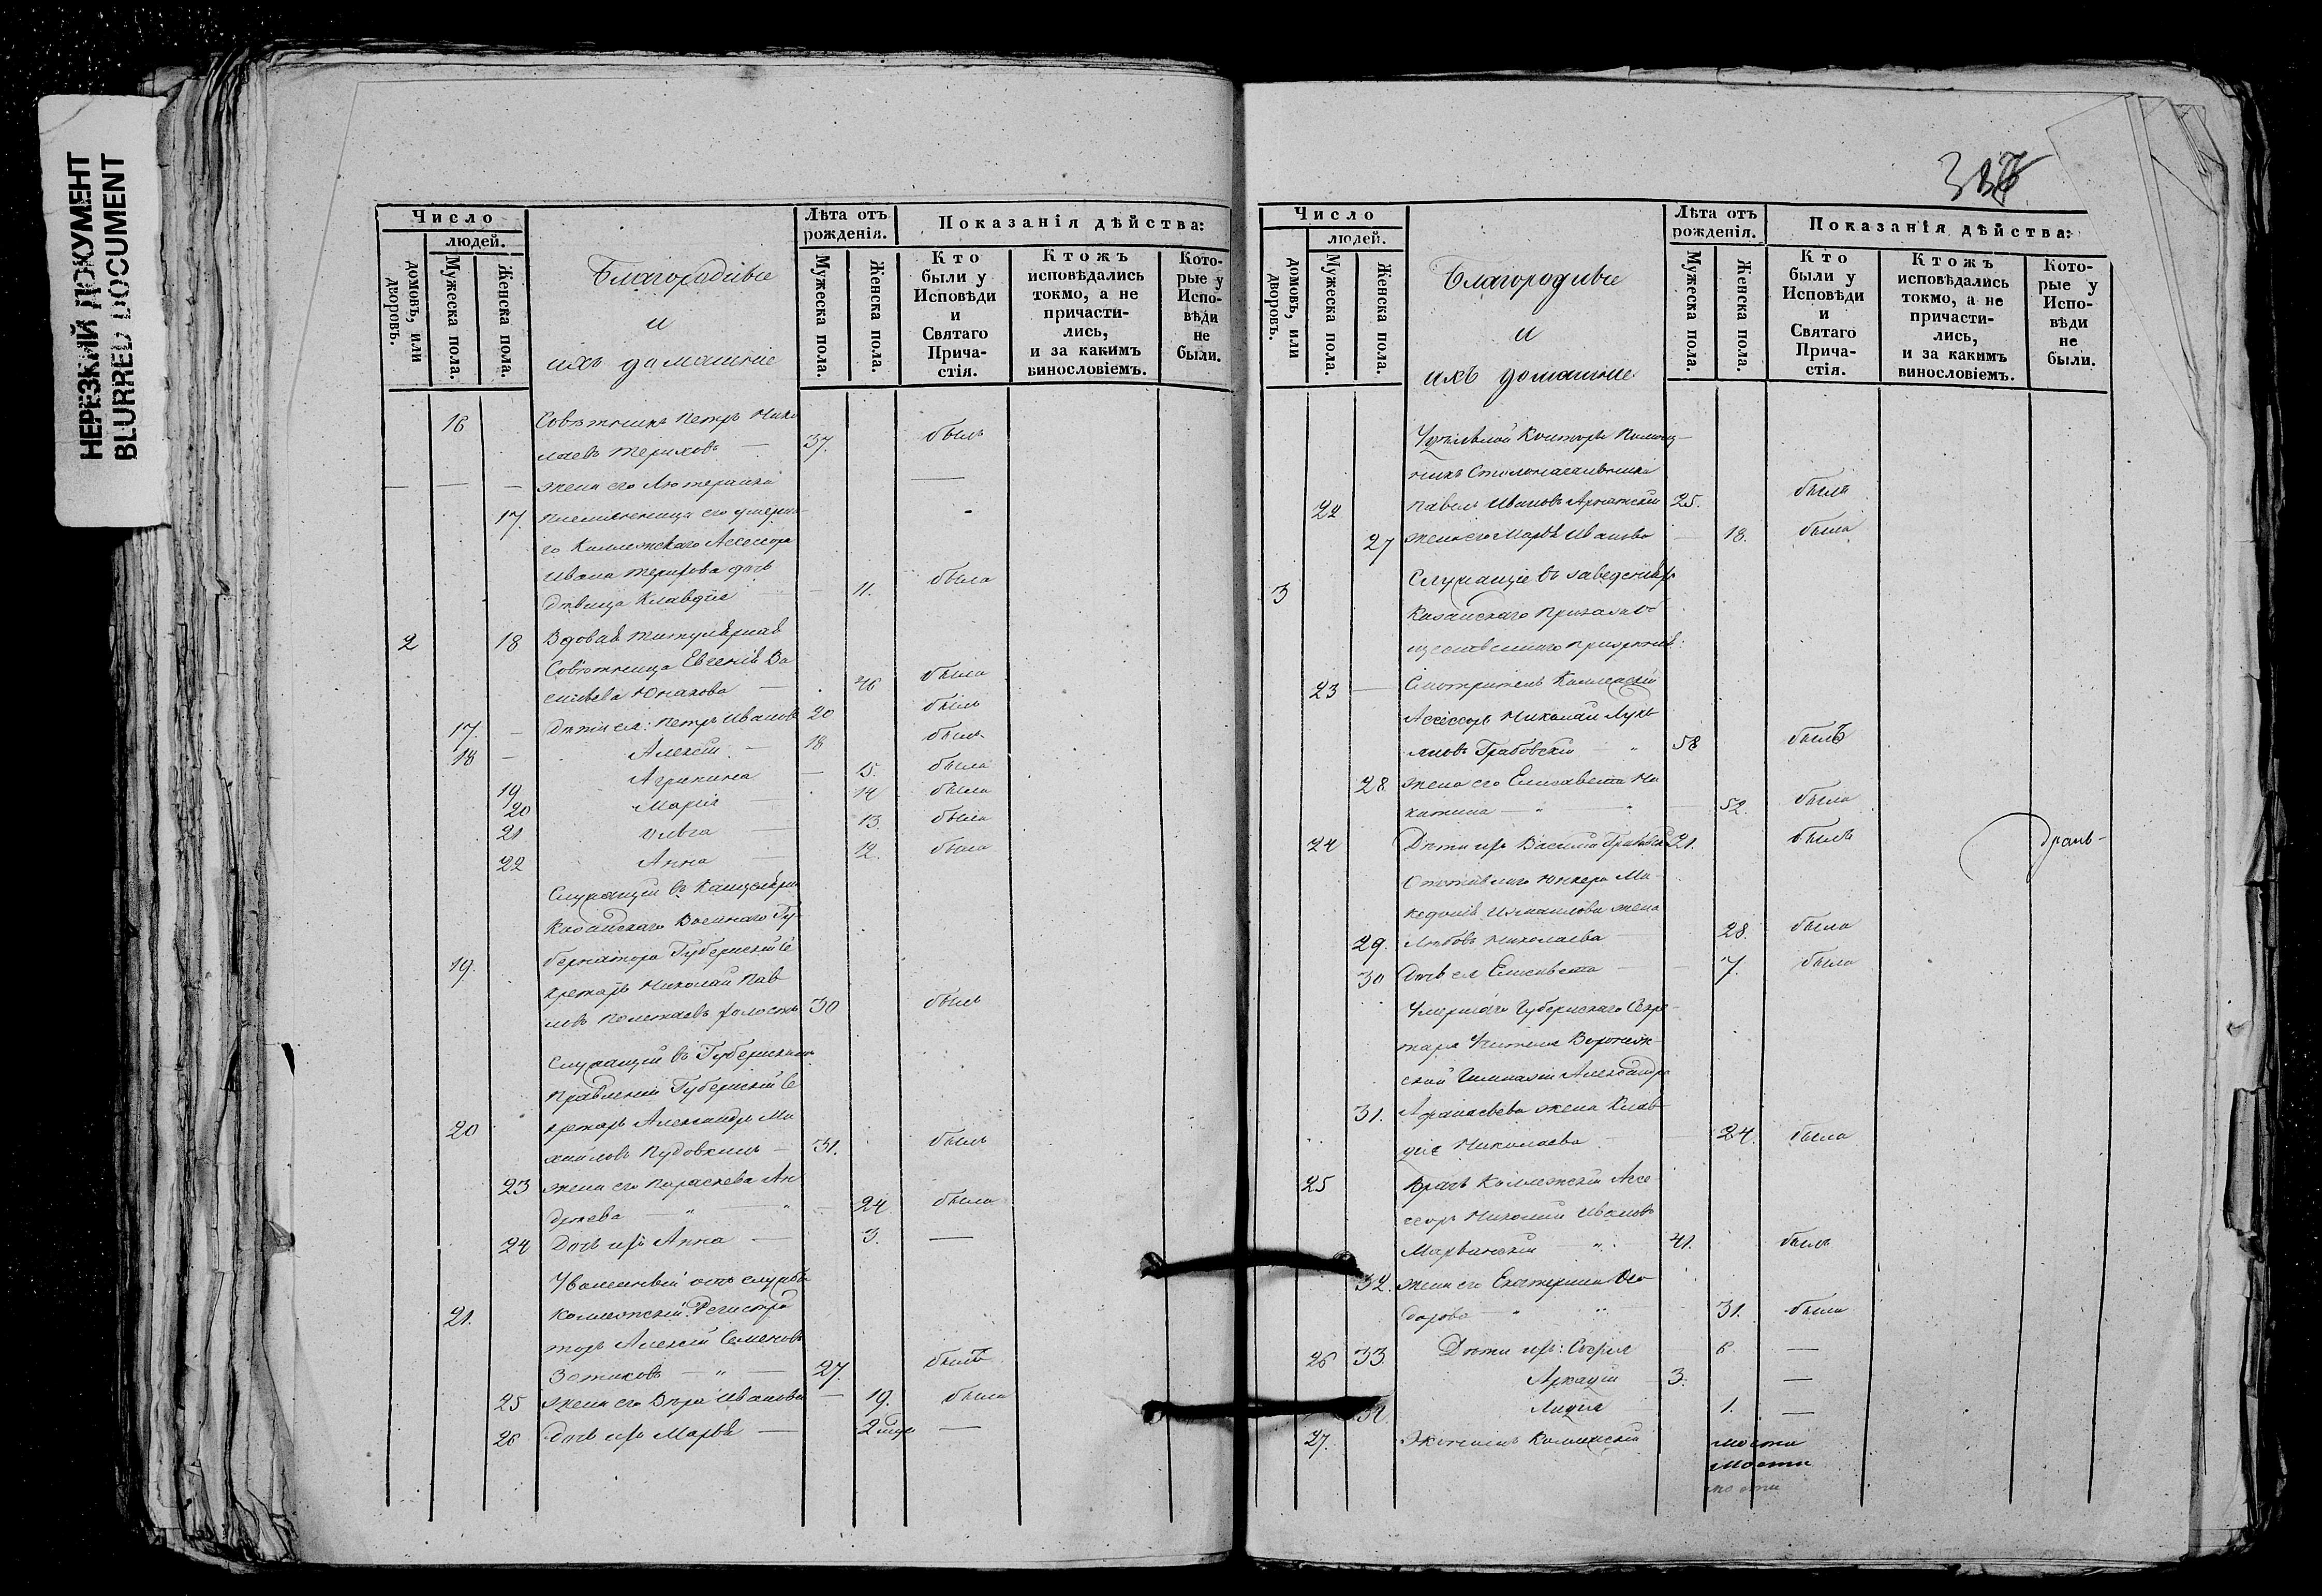 НЕРЕЗКИЙ ДОКУМЕНТ
BLURRED DOCUMENT
Число
людей.
домовъ, или дворовъ.
Мужеска пола.
Женска пола.
Благородныe
и
ихъ домашніе
Лѣта отъ рожденія.
Мужеска пола.
Женска пола.
Показанія дѣйства:
Кто были у Исповѣди и Святаго Прича-стія.
Ктожъ исповѣдались токмо, а не причасти-лись, и за какимъ винословіемъ.
Кото-рые у Испо-вѣди не были.
16 Совѣтникъ Петръ Нико
лаевъ Териховъ — 37. былъ
— — — жена его Лютеранка —
17. племянница его умерша
го Коллежскаго Асессора
Ивана Терихова дочь
дѣвица Клавдія — 11. была
2 18 Вдова Титулярная
Совѣтница Евгенія Ва
сильева Юнакова — 46 была
17. — Дѣти ея: Петръ Ивановъ 20 былъ
18 — Алексѣй — 18 былъ
19 Агрипина — 15. была
20 Марія — 14 была
21 Ольга — 13. была
22 Анна — 12. была
Служащій въ Канцеляріи
Казанскаго Военнаго Гу-
19. бернатора Губернскій Се
кретарь Николай Пав
ловъ Полетаевъ холостъ 30 былъ
Служащій въ Губернскомъ
Правленіи Губернскій Се
20 кретарь Александръ Ми
хайловъ Пудовкинъ — 31. былъ
23 жена его Параскева Ан
дреева — " — " — 24 была
24 Дочь ихъ Анна — 3. —
Уволенный отъ службы
21. Коллежскій Регистра
торъ Алексѣй Семеновъ
Зотиковъ — " — 27. былъ
25 жена его Вѣра Иванова — 19. была
26 дочь ихъ Марья — 2 —
Число
людей.
домовъ, или дворовъ.
Мужеска пола.
Женска пола.
Благородныe
и
ихъ домашніе
Лѣта отъ рожденія.
Мужеска пола.
Женска пола.
Показанія дѣйства:
Кто были у Исповѣди и Святаго Прича-стія.
Ктожъ исповѣдались токмо, а не причасти-лись, и за какимъ винословіемъ.
Кото-рые у Испо-вѣди не были.
Удѣльной Конторы Помощ-
никъ Столоначальника
22 Павелъ Ивановъ 25. былъ
27 жена его Марья Иванова — 18. была
3 Служащіе въ заведеніяхъ
Казанскаго Приказа об
щественнаго призрѣнія:
23 — Смотритель Коллежскій
Асессоръ Николай Лукь
яновъ Грабовскій " 58 былъ
28 жена его Елизавета Ни
китина — " " — 52. была
24 Дѣти ихъ Василій Грабовскій 21. былъ
Отставнаго Юнкера Ма-
кедонія Измайлова жена
29. Любовь Николаева — 28. была
30 Дочь ея Елисавета — 7. была
Умершаго Губернскаго Секре-
таря Учителя Воронеж-
ской Гимназіи Александра
31. Афанасьева жена Клав
дія Николаева — 24. была
25 Врачъ Коллежскій Асе
ссоръ Николай Ивановъ
" 41. былъ
32. жена его Екатерина Ѳео
дорова — " " 31. была
26 33 Дѣти ихъ: Софія 6 —
Аркадій 3. —
34 Лидія 1. —
27. Экономъ Коллежскій